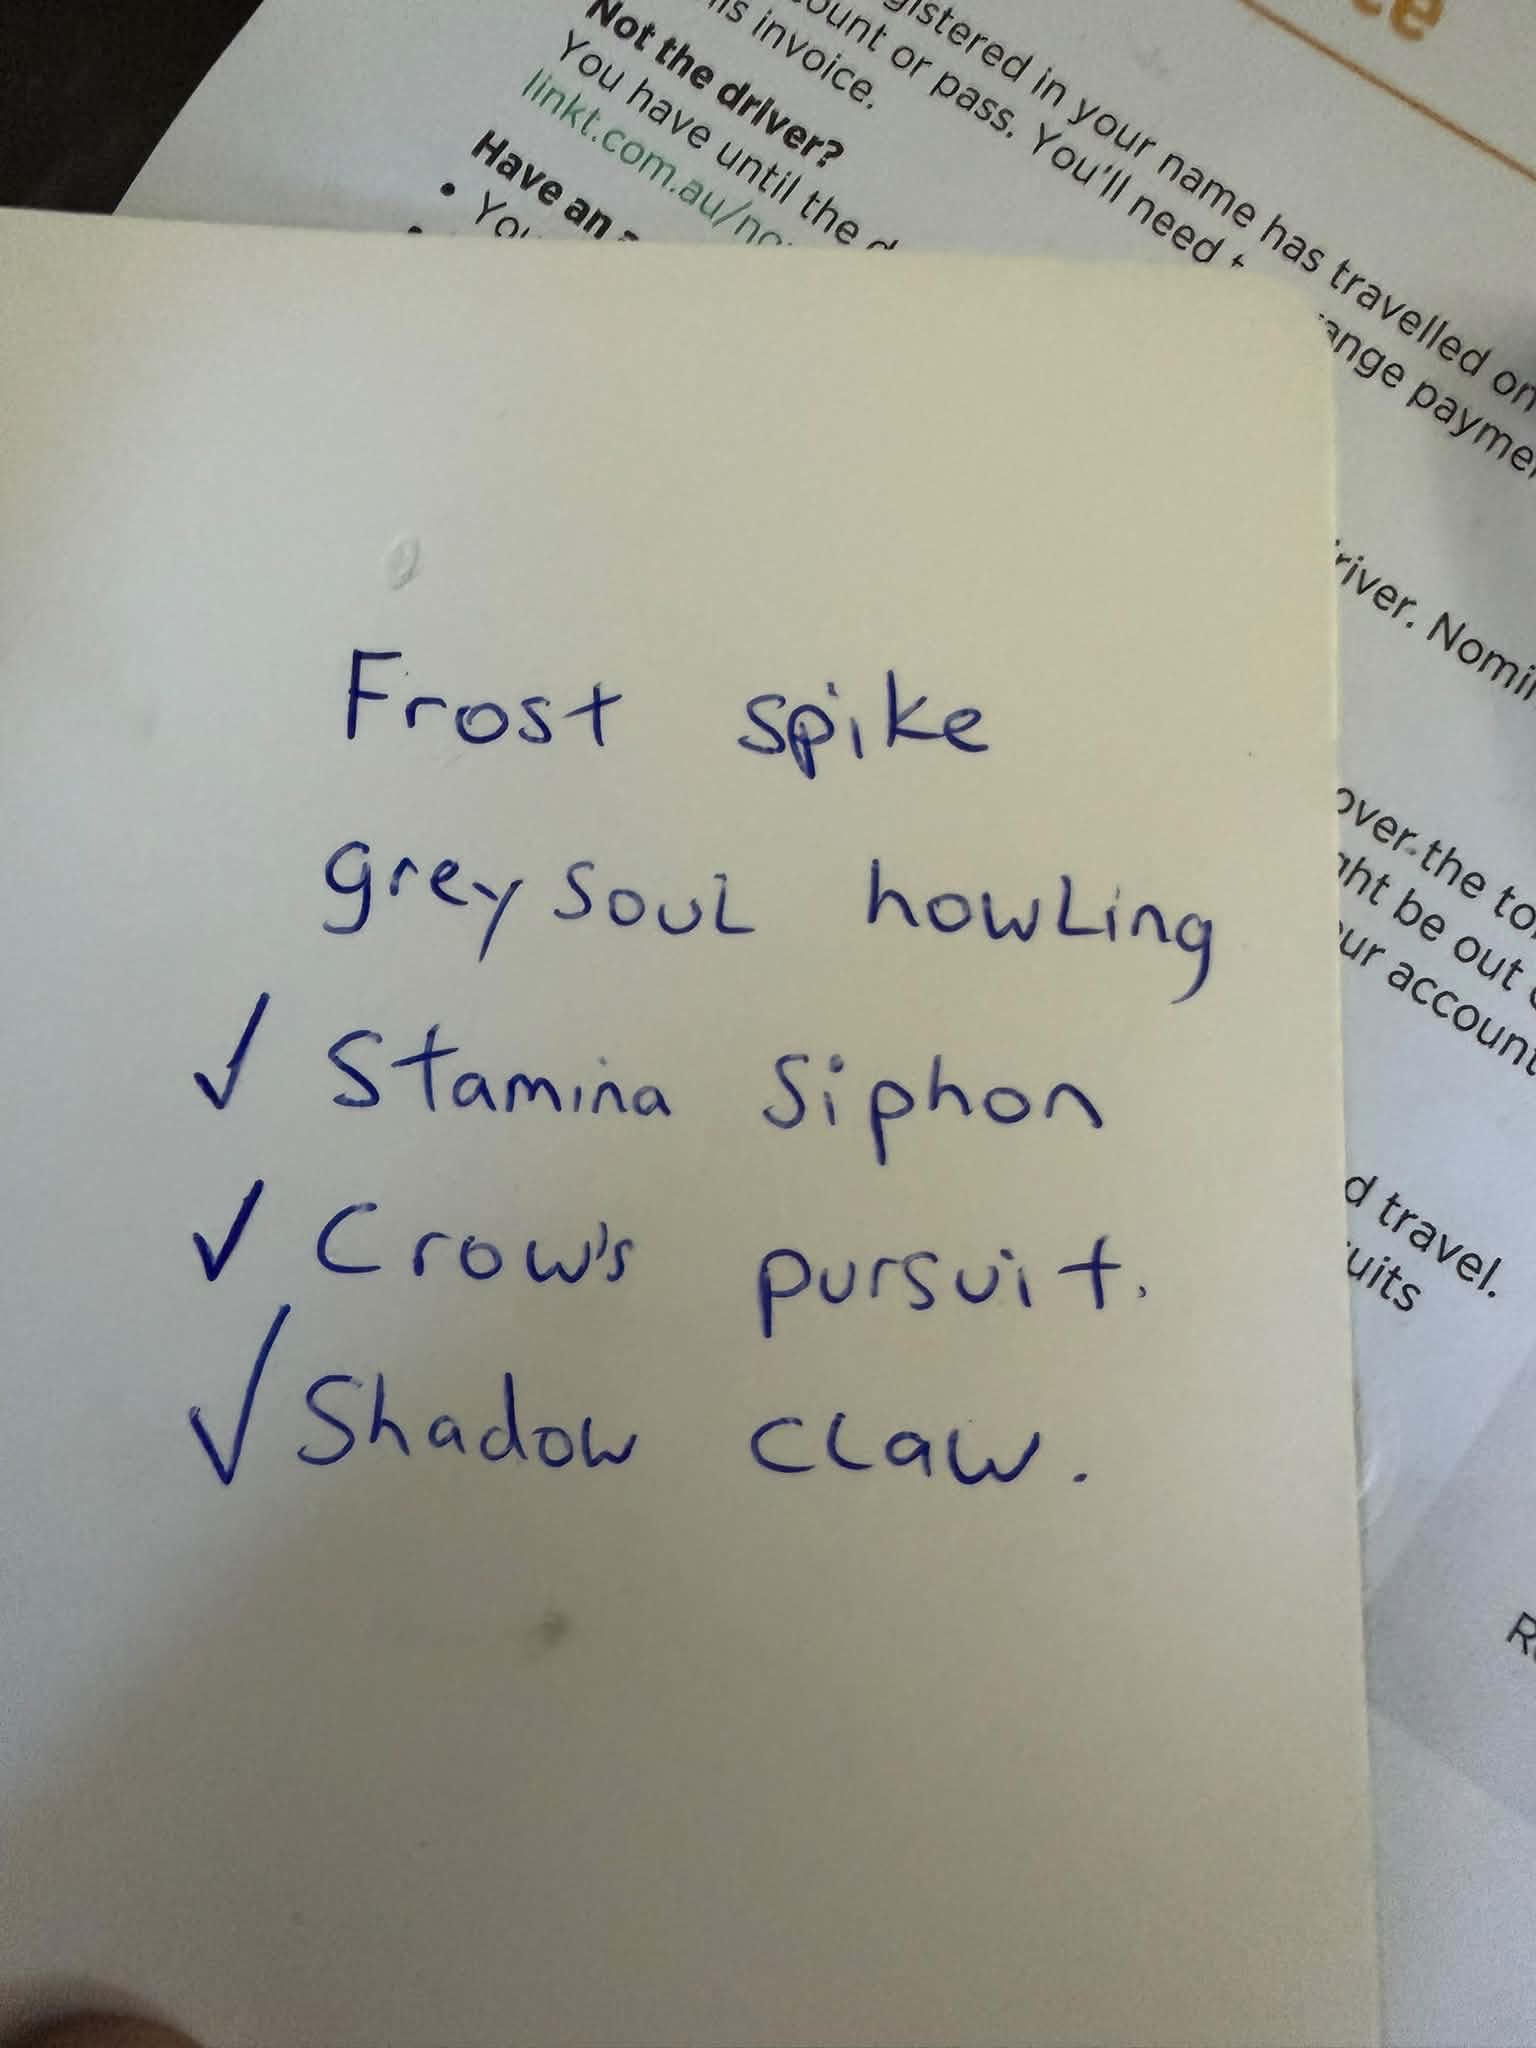 ce
gistered in your name has travelled on
ount or pass. You'll need
is invoice.
Not the driver?
You have until the
linkt.com.au/no
Have an
• You
ange payme
river. Nomi
over the to
ght be out
ur account
d travel.
uits
Frost spike
grey soul howling
✓ Stamina Siphon
✓ Crow's pursuit.
✓ Shadow claw.